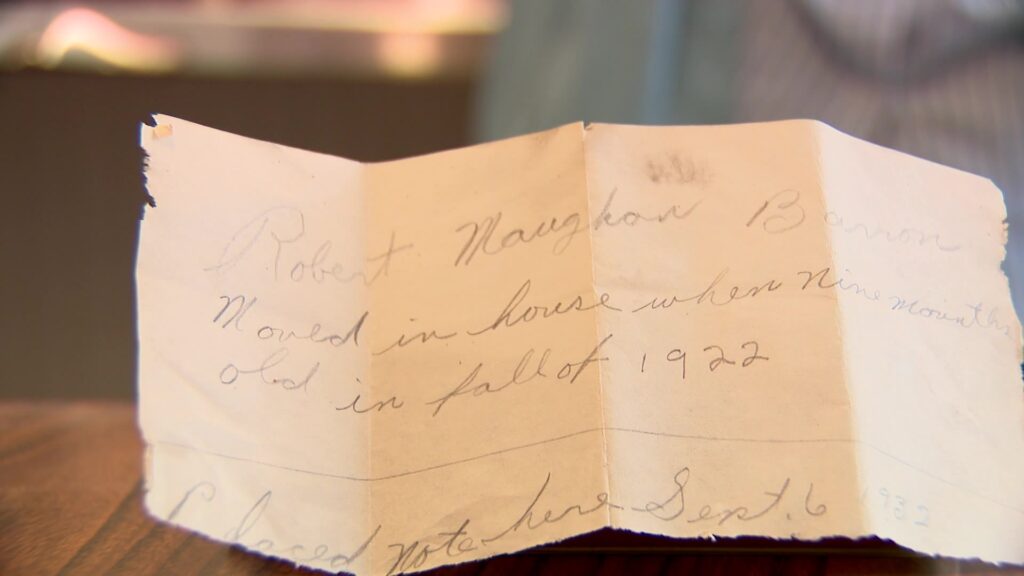 Robert Maughan Barron
Moved in house when Nine mounths
old in fall of 1922
Placed Note here Sept. 6 1932